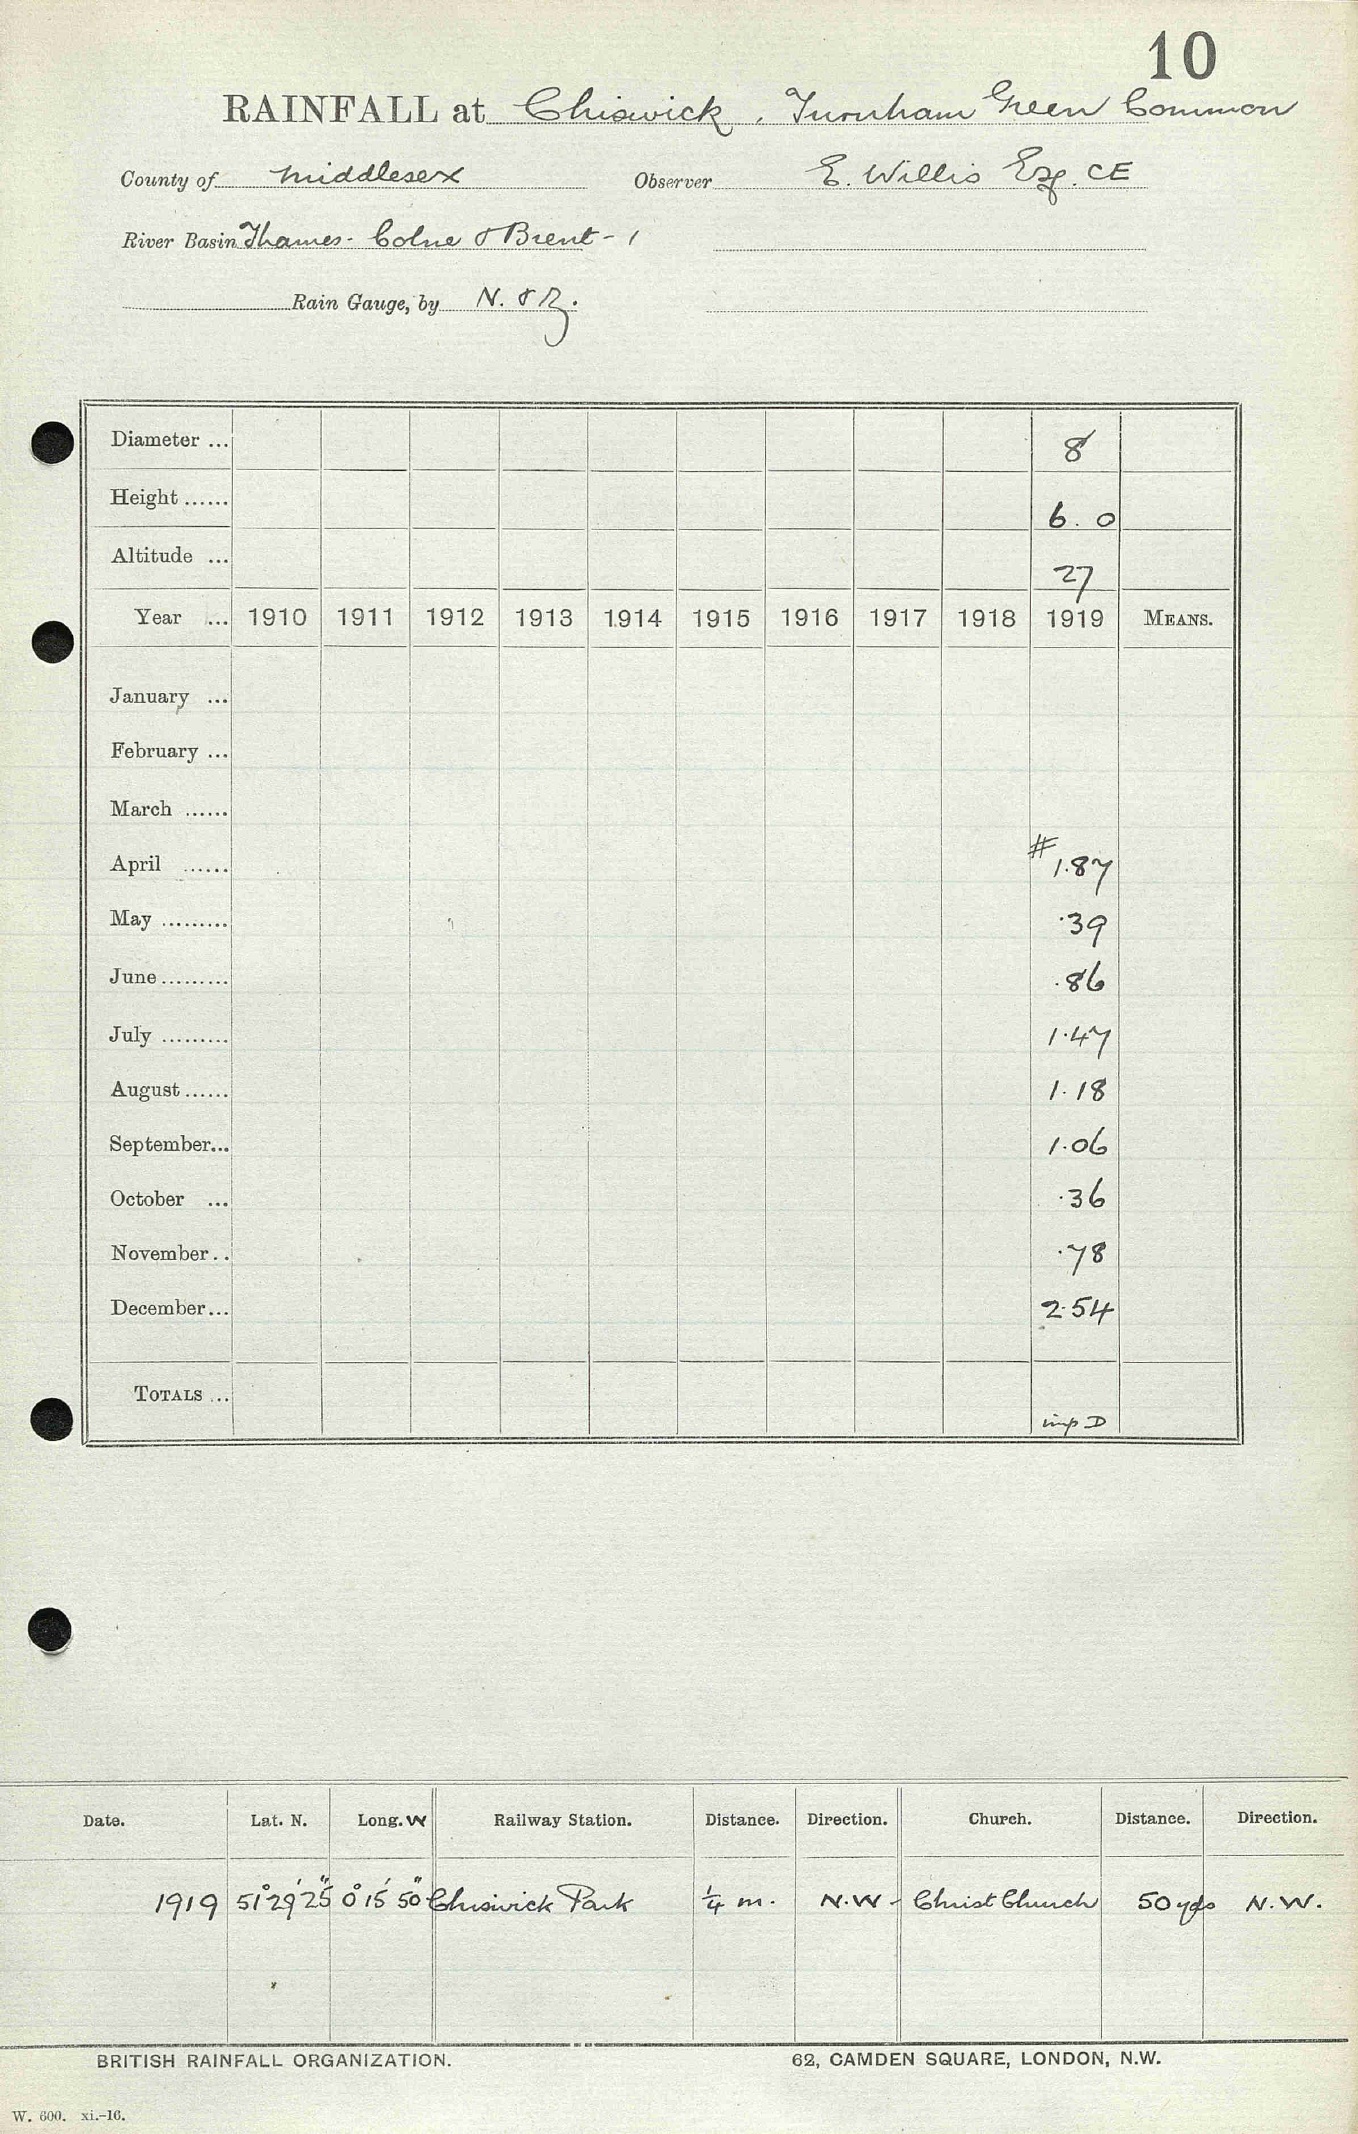 10
RAINFALL at Chiswick, Turnham Green Common
County of Middlesex Observer E. Willis Esq. CE
River Basin Thames - Colne & Brent - 1
Rain Gauge, by N. & Z.
Diameter ... 8
Height ...... 6. 0
Altitude ... 27
Year ... 1910 1911 1912 1913 1914 1915 1916 1917 1918 1919 MEANS.
January ...
February ...
March ......
April ...... # 1.87
May ......... .39
June ......... .86
July ......... 1.47
August ...... 1.18
September... 1.06
October ... .36
November .. .78
December... 2.54
TOTALS ... imp D
Date. Lat. N. Long. W Railway Station. Distance. Direction. Church. Distance. Direction.
1919 51° 29' 25" 0° 15' 50" Chiswick Park 1/4 m. N.W- Christ Church 50 yds N.W.
BRITISH RAINFALL ORGANIZATION. 62, CAMDEN SQUARE, LONDON, N.W.
W. 600. xi.-16.